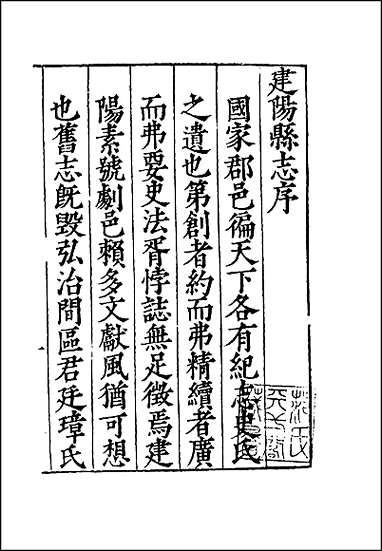 建陽縣志序
國家郡邑徧天下各有紀志史氏
之遺也第創者約而弗精續者廣
而弗要史法胥悖誌無足徵焉建
陽素號劇邑賴多文獻風猶可想
也舊志既毀弘治間區君廷璋氏